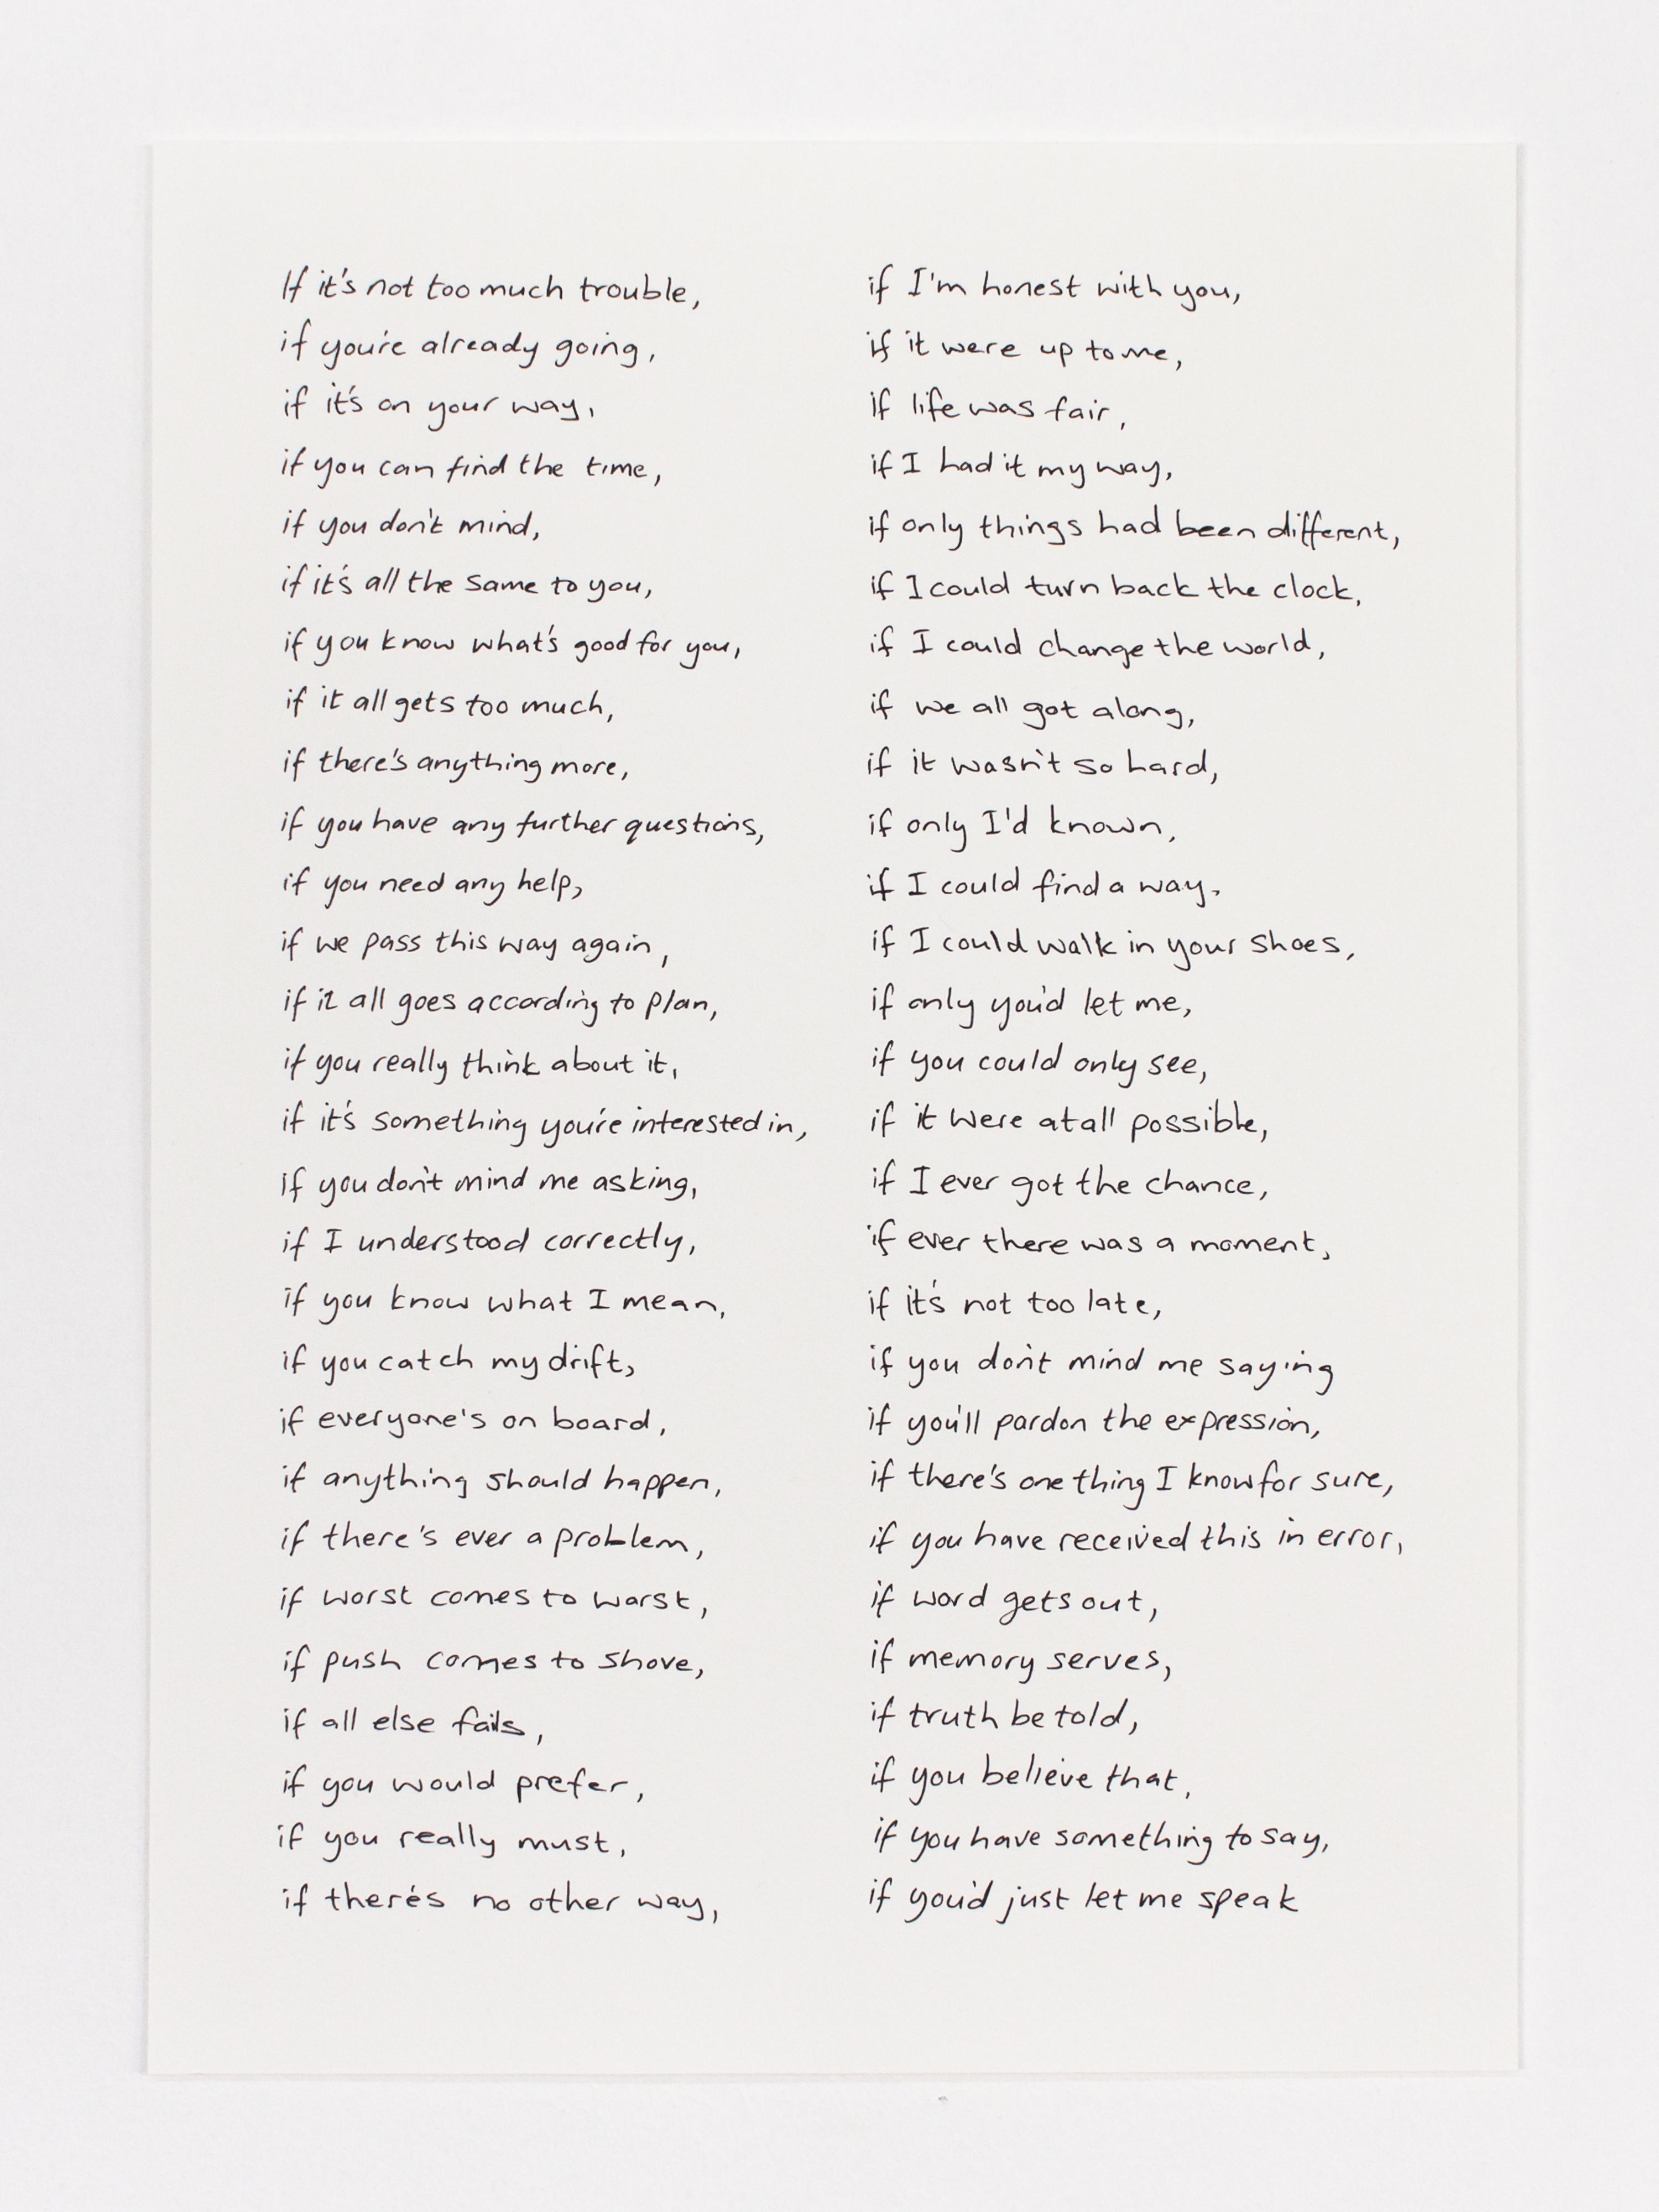 If it's not too much trouble,
if you're already going,
if it's on your way,
if you can find the time,
if you don't mind,
if it's all the same to you,
if you know what's good for you,
if it all gets too much,
if there's anything more,
if you have any further questions,
if you need any help,
if we pass this way again,
if it all goes according to plan,
if you really think about it,
if it's something you're interested in,
if you don't mind me asking,
if I understood correctly,
if you know what I mean,
if you catch my drift,
if everyone's on board,
if anything should happen,
if there's ever a problem,
if worst comes to worst,
if push comes to shove,
if all else fails,
if you would prefer,
if you really must,
if there's no other way,
if I'm honest with you,
if it were up to me,
if life was fair,
if I had it my way,
if only things had been different,
if I could turn back the clock,
if I could change the world,
if we all got along,
if it wasn't so hard,
if only I'd known,
if I could find a way,
if I could walk in your shoes,
if only you'd let me,
if you could only see,
if it were at all possible,
if I ever got the chance,
if ever there was a moment,
if it's not too late,
if you don't mind me saying
if you'll pardon the expression,
if there's one thing I know for sure,
if you have received this in error,
if word gets out,
if memory serves,
if truth be told,
if you believe that,
if you have something to say,
if you'd just let me speak